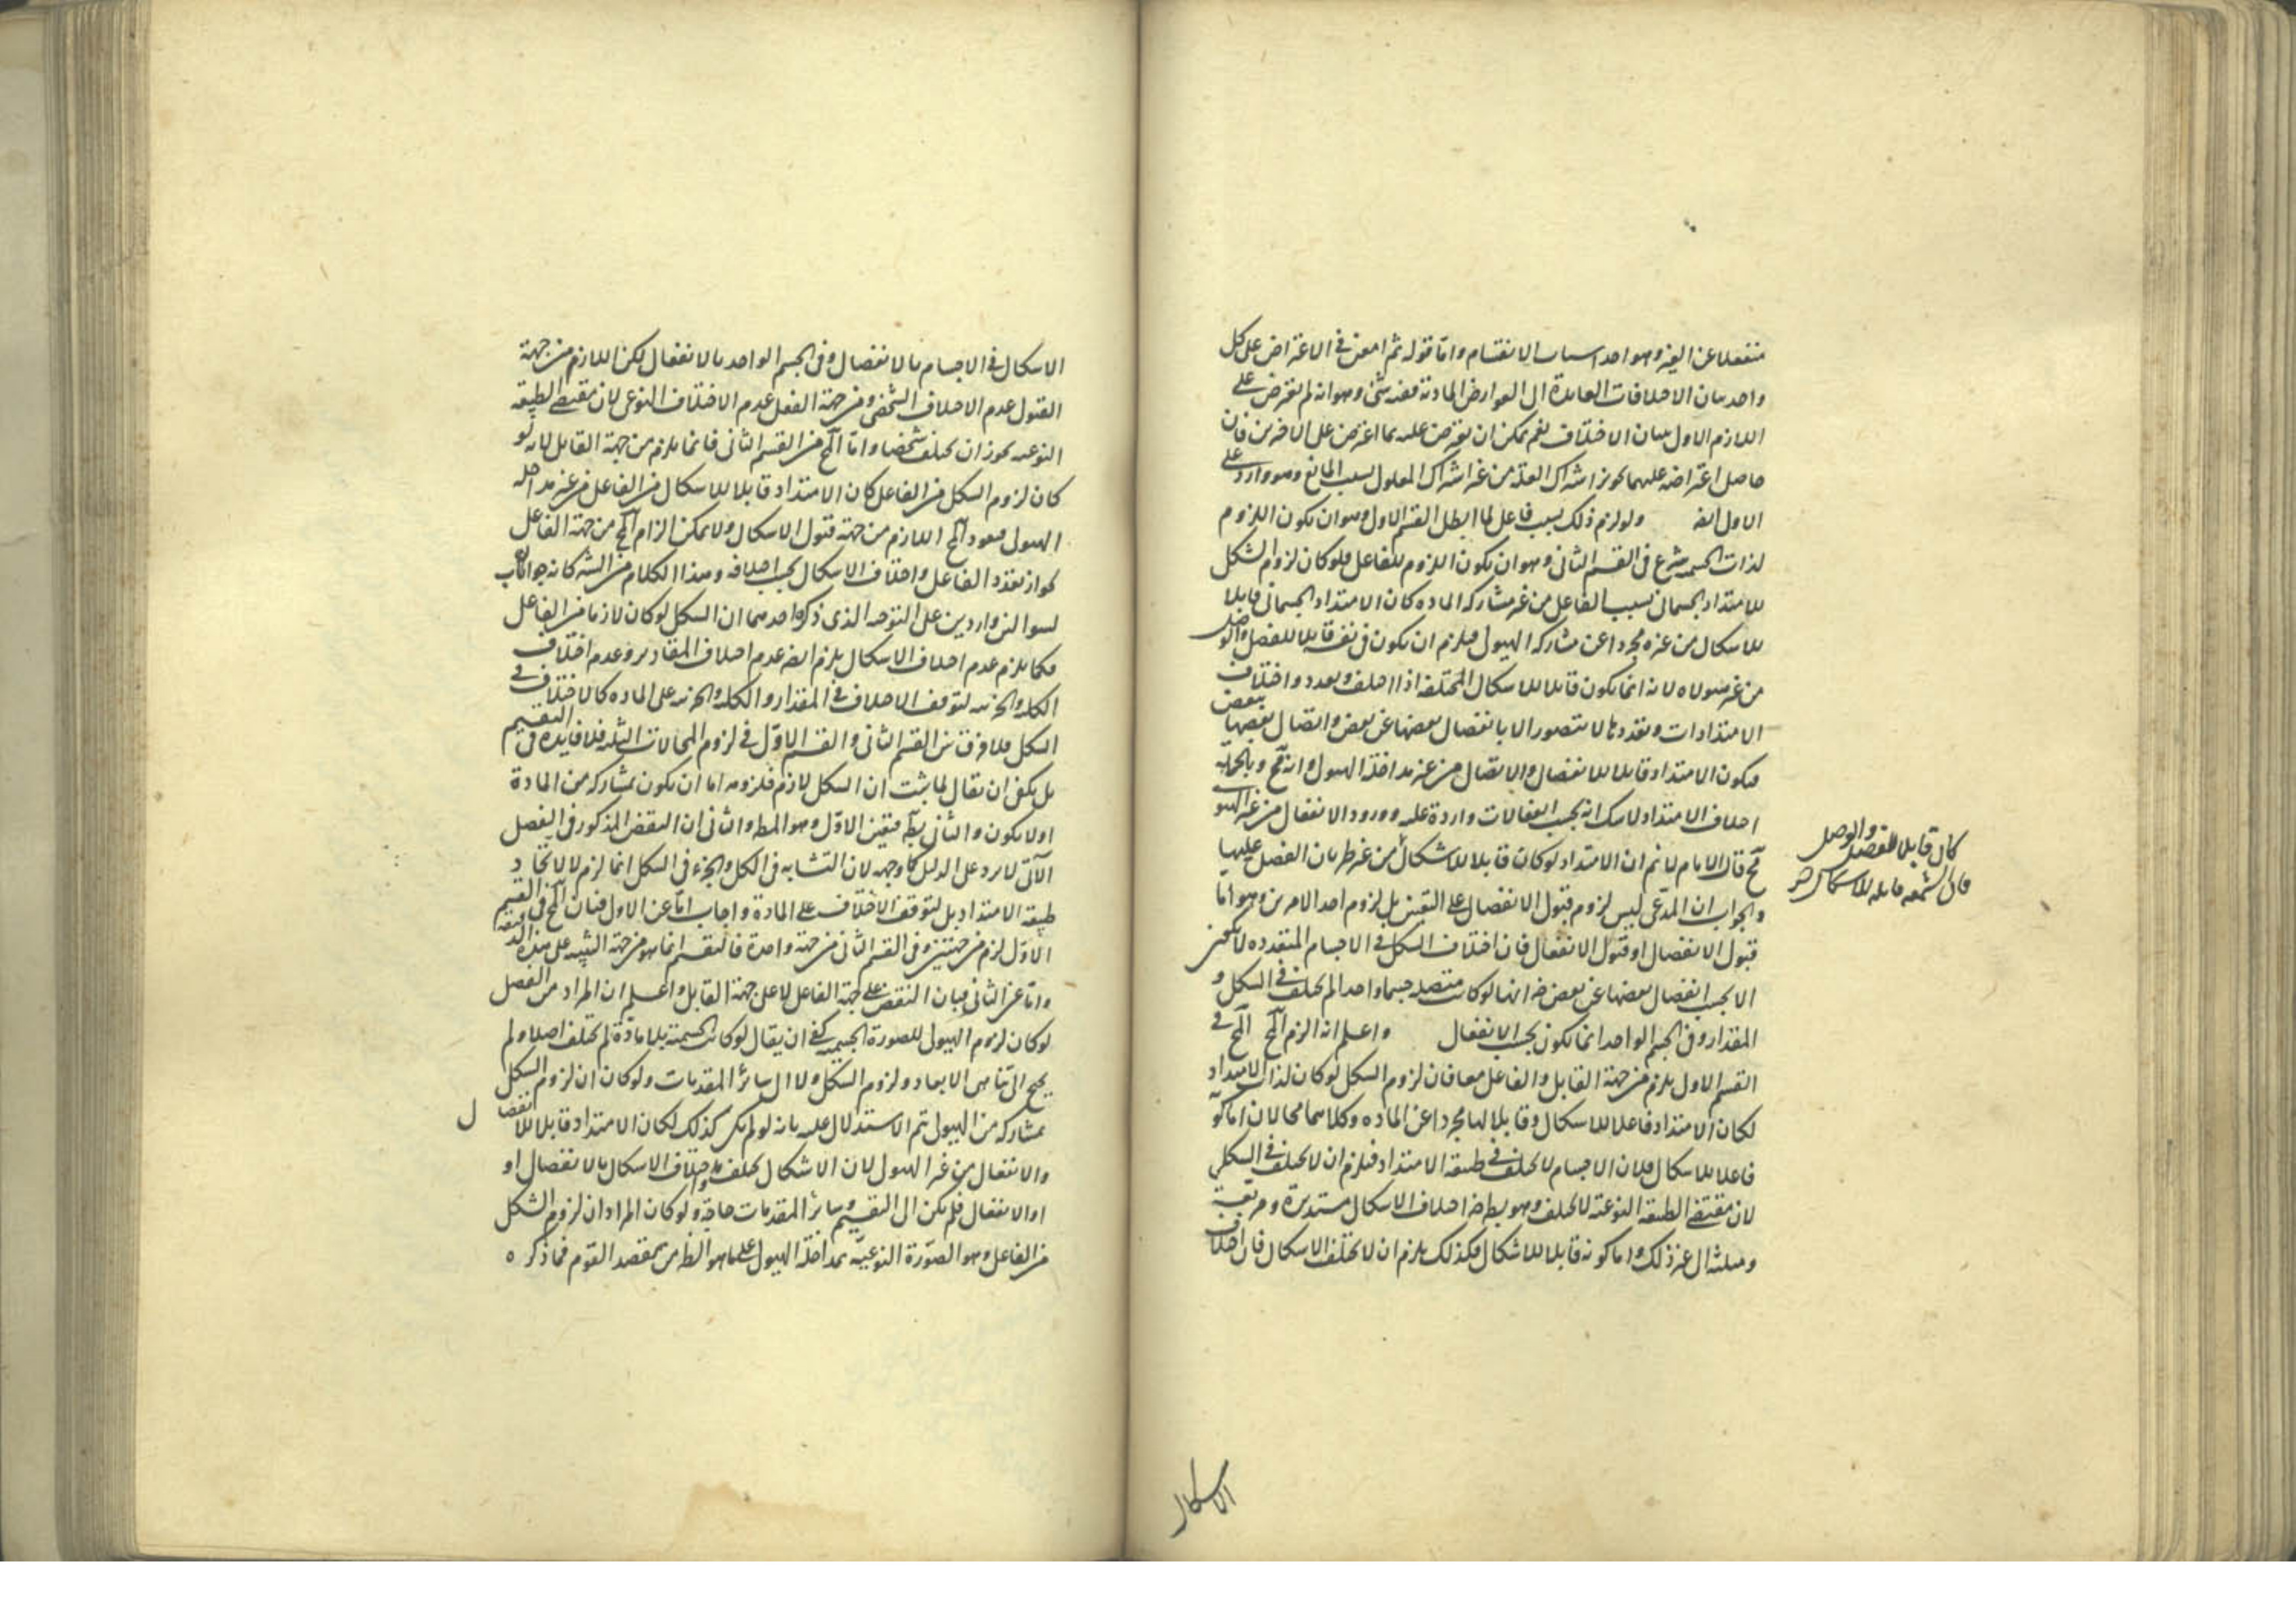 منفصلا عن الغير وهو احد اسباب الانقسام واما قوله ثم امعن فى الاعتراض على كل
واحد ببيان الاختلافات العايدة الى العوارض المادية ففيه شئ وهو انه لم يعترض على
اللازم الاول ببيان الاختلاف نعم يمكن ان يعترض عليه بما اعترض على الاخرين فان
حاصل اعتراضه عليهما تجويز اشتراك العلة من غير اشتراك المعلول بسبب المانع وهو وارد على
الاول ايضه ولو لزم ذلك بسبب فاعل لما ابطل القسم الاول وهو ان يكون اللزوم
لذات الجسمية شرع فى القسم الثانى وهو ان يكون اللزوم للفاعل فلو كان لزوم الشكل
للامتداد الجسمانى بسبب الفاعل من غير مشاركة المادة كان الامتداد الجسمانى قابلا
للاشكال من غيره مجردا عن مشاركة الهيولى فيلزم ان يكون فى نفسه قابلا للفصل والوصل
من غير هيولاه لانه انما يكون قابلا للاشكال المختلفة اذا اختلف وتعدد واختلاف
الامتدادات وتعددها لا يتصور الا بانفصال بعضها عن بعض واتصال بعضها ببعض
فيكون الامتداد قابلا للانفصال والاتصال من غير مداخلة الهيولى وانه مح وبالجملة
اختلاف الامتداد لا شك انه بحسب انفعالات واردة عليه وورود الانفعال من غير الهيولى
مح قال الامام لا نم ان الامتداد لو كان قابلا للاشكال من غير طريان الفصل عليها
كان قابلا للفصل والوصل
فان الشمعة قابلة للاشكال
والجواب ان المدعى ليس لزوم قبول الانفصال على التعيين بل لزوم احد الامرين وهو اما
قبول الانفصال او قبول الانفعال فان اختلاف الشكل فى الاجسام المتعددة لا يمكن
الا بحسب انفصال بعضها عن بعض ضه انها لو كانت متصلة جسما واحدا لم يختلف فى الشكل و
المقدار وفى الجسم الواحد انما يكون بحسب الانفعال واعلم انه الزم المح المح فى
القسم الاول يلزم من جهة القابل والفاعل معا فان لزوم الشكل لو كان لذات الامتداد
لكان الامتداد فاعلا للاشكال وقابلا لها مجردا عن المادة وكلاهما محالان اما كونه
فاعلا للاشكال فلان الاجسام لا تختلف فى طبيعة الامتداد فيلزم ان لا يختلف فى الشكل
لان مقتضى الطبيعة النوعية لا يختلف وهو بط ضه اختلاف الاشكال مستديرة ومربعة
ومثلثة الى غير ذلك واما كونه قابلا للاشكال فكذلك يلزم ان لا يختلف الاشكال فان اختلاف
الاشكال
الاشكال فى الاجسام بالانفصال وفى الجسم الواحد بالانفعال لكن اللازم من جهة
القبول عدم الاختلاف الشخصى ومن جهة الفعل عدم الاختلاف النوعى لان مقتضى الطبيعة
النوعية يجوز ان يختلف شخصا واما المح من القسم الثانى فانما يلزم من جهة القابل لانه لو
كان لزوم الشكل من الفاعل كان الامتداد قابلا للاشكال من الفاعل من غير مداخلة
الهيولى فيعود المح اللازم من جهة قبول الاشكال ولا يمكن الزام المح من جهة الفاعل
لجواز تعدد الفاعل واختلاف الاشكال بحسب اختلافه وهذا الكلام من الشه كانه جواب
لسؤالين واردين على التوجيه الذى ذكره احدهما ان الشكل لو كان لازما من الفاعل
فكما يلزم عدم اختلاف الاشكال يلزم ايضه عدم اختلاف المقادير وعدم اختلاف
الكلية والجزئية لتوقف الاختلاف فى المقدار والكلية والجزئية على المادة كالاختلاف فى
الشكل فلا فرق بين القسم الثانى والقسم الاول فى لزوم المحالات الثلثة فلا فايدة فى التقسيم
بل يكفى ان يقال لما ثبت ان الشكل لازم فلزومه اما ان يكون بمشاركة من المادة
او لا يكون والثانى بط فتعين الاول وهو المط والثانى ان النقض المذكور فى الفصل
الآتى لا يرد على الدليل كما وجهه لان التشابه فى الكل والجزء فى الشكل انما لزم لا لاتحاد
طبيعة الامتداد بل لتوقف الاختلاف على المادة واجاب اما عن الاول فبان المح فى القسم
الاول لزم من جهتين وفى القسم الثانى من جهة واحدة فالتقسيم انما هو من جهة التنبيه على هذه
واما عن الثانى فبان النقض على جهة الفاعل لا على جهة القابل واعلم ان المراد من الفصل
لو كان لزوم الهيولى للصورة الجسمية كفى ان يقال لو كانت الجسمية بلا مادة لم تختلف اصلا ولم
يحتج الى تناهى الابعاد ولزوم الشكل ولا الى سائر المقدمات ولو كان ان لزوم الشكل
بمشاركة من الهيولى تم الاستدلال عليه بانه لو لم يكن كذلك لكان الامتداد قابلا للانفصال
والانفعال من غير الهيولى لان الاشكال تختلف واختلاف الاشكال بالانفصال او
او الانفعال فلم يكن الى التقسيم وسائر المقدمات حاجة ولو كان المراد ان لزوم الشكل
من الفاعل وهو الصورة النوعية بمداخلة الهيولى على ما هو الظ من مقصد القوم فما ذكره